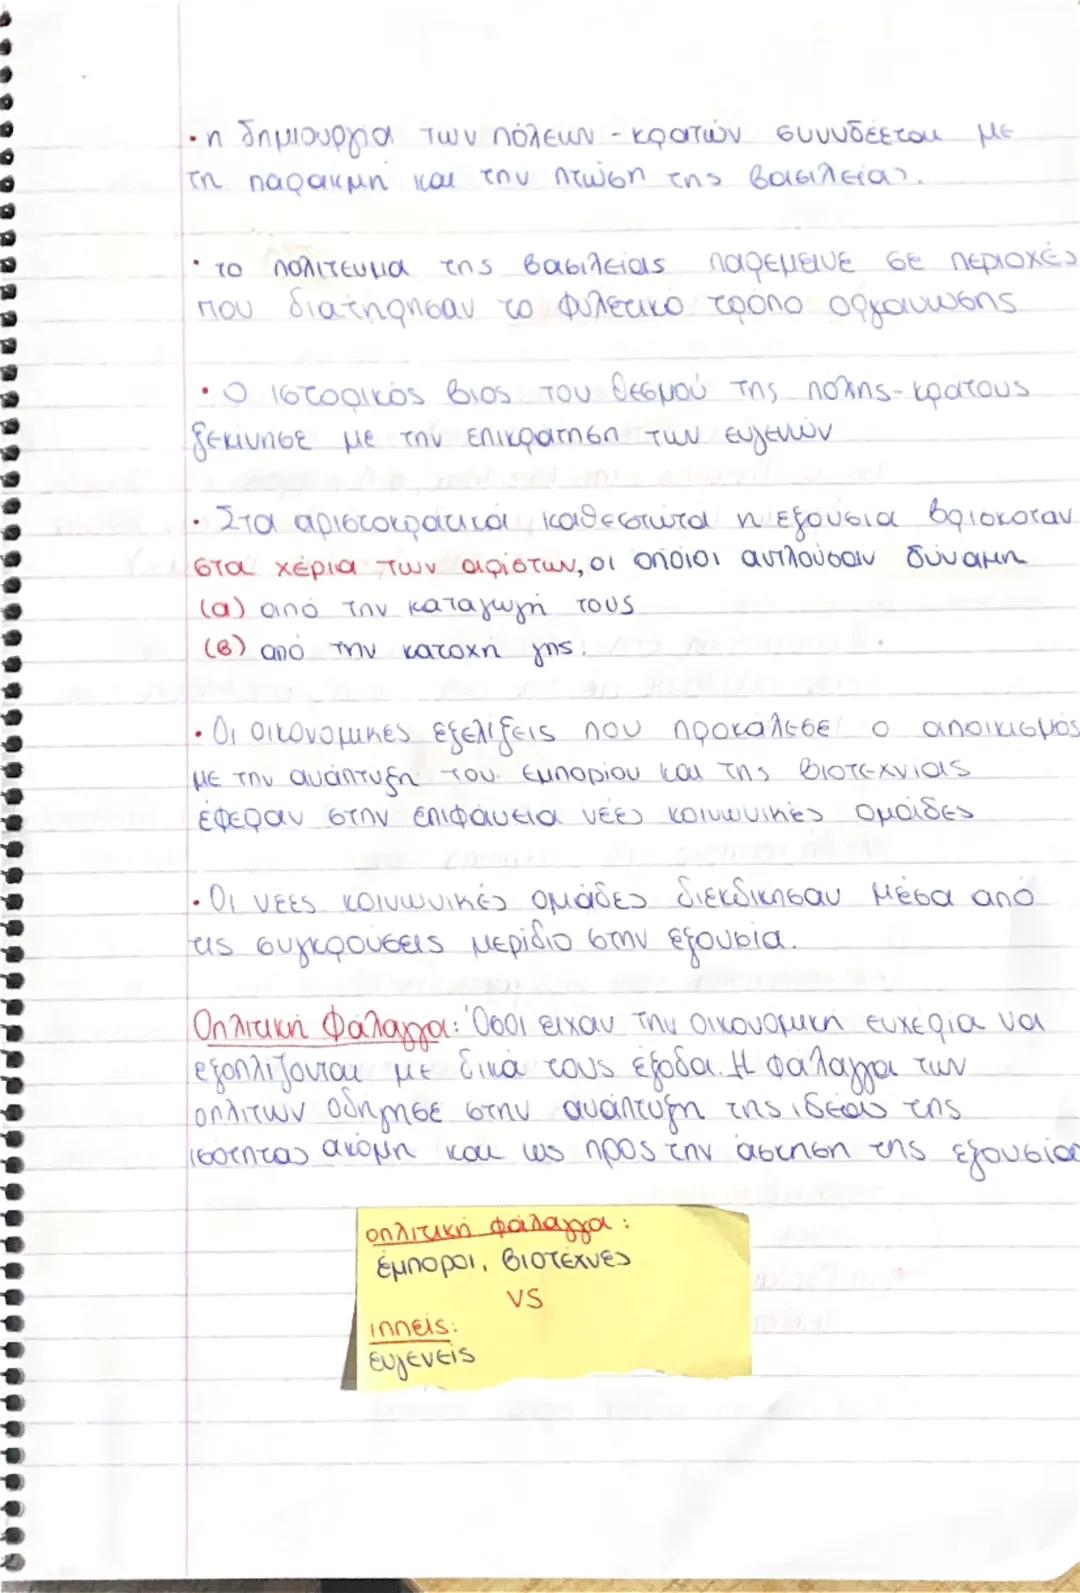 • η δημιουργία των πόλεων - κρατών συνδέεται με
τη παρακμή και την πτώση της βασιλείας.
• το πολίτευμα της βασιλείας παρέμεινε σε περιοχές
που διατήρησαν το φυλετικό τρόπο οργάνωσης
• Ο ιστορικός βίος του θεσμού της πόλης-κράτους
ξεκίνησε με την επικράτηση των ευγενών
• Στα αριστοκρατικά καθεστώτα η εξουσία βρισκόταν
στα χέρια των αρίστων, οι οποίοι αντλούσαν δύναμη
(α) από την καταγωγή τους
(β) από την κατοχή γης.
• Οι οικονομικές εξελίξεις που προκάλεσε ο αποικισμός
με την ανάπτυξη του εμπορίου και της βιοτεχνίας
έφεραν στην επιφάνεια νέες κοινωνικές ομάδες
• Οι νέες κοινωνικές ομάδες διεκδίκησαν μέσα από
τις συγκρούσεις μερίδιο στην εξουσία.
Οπλιτική Φάλαγγα: Όσοι είχαν την οικονομική ευχέρια να
εξοπλίζονται με δικά τους έξοδα. Η φάλαγγα των
οπλιτών οδήγησε στην ανάπτυξη της ιδέας της
ισότητας ακόμη και ως προς την άσκηση της εξουσίας
οπλιτική φάλαγγα:
έμποροι, βιοτέχνες
VS
ιππείς:
ευγενείς